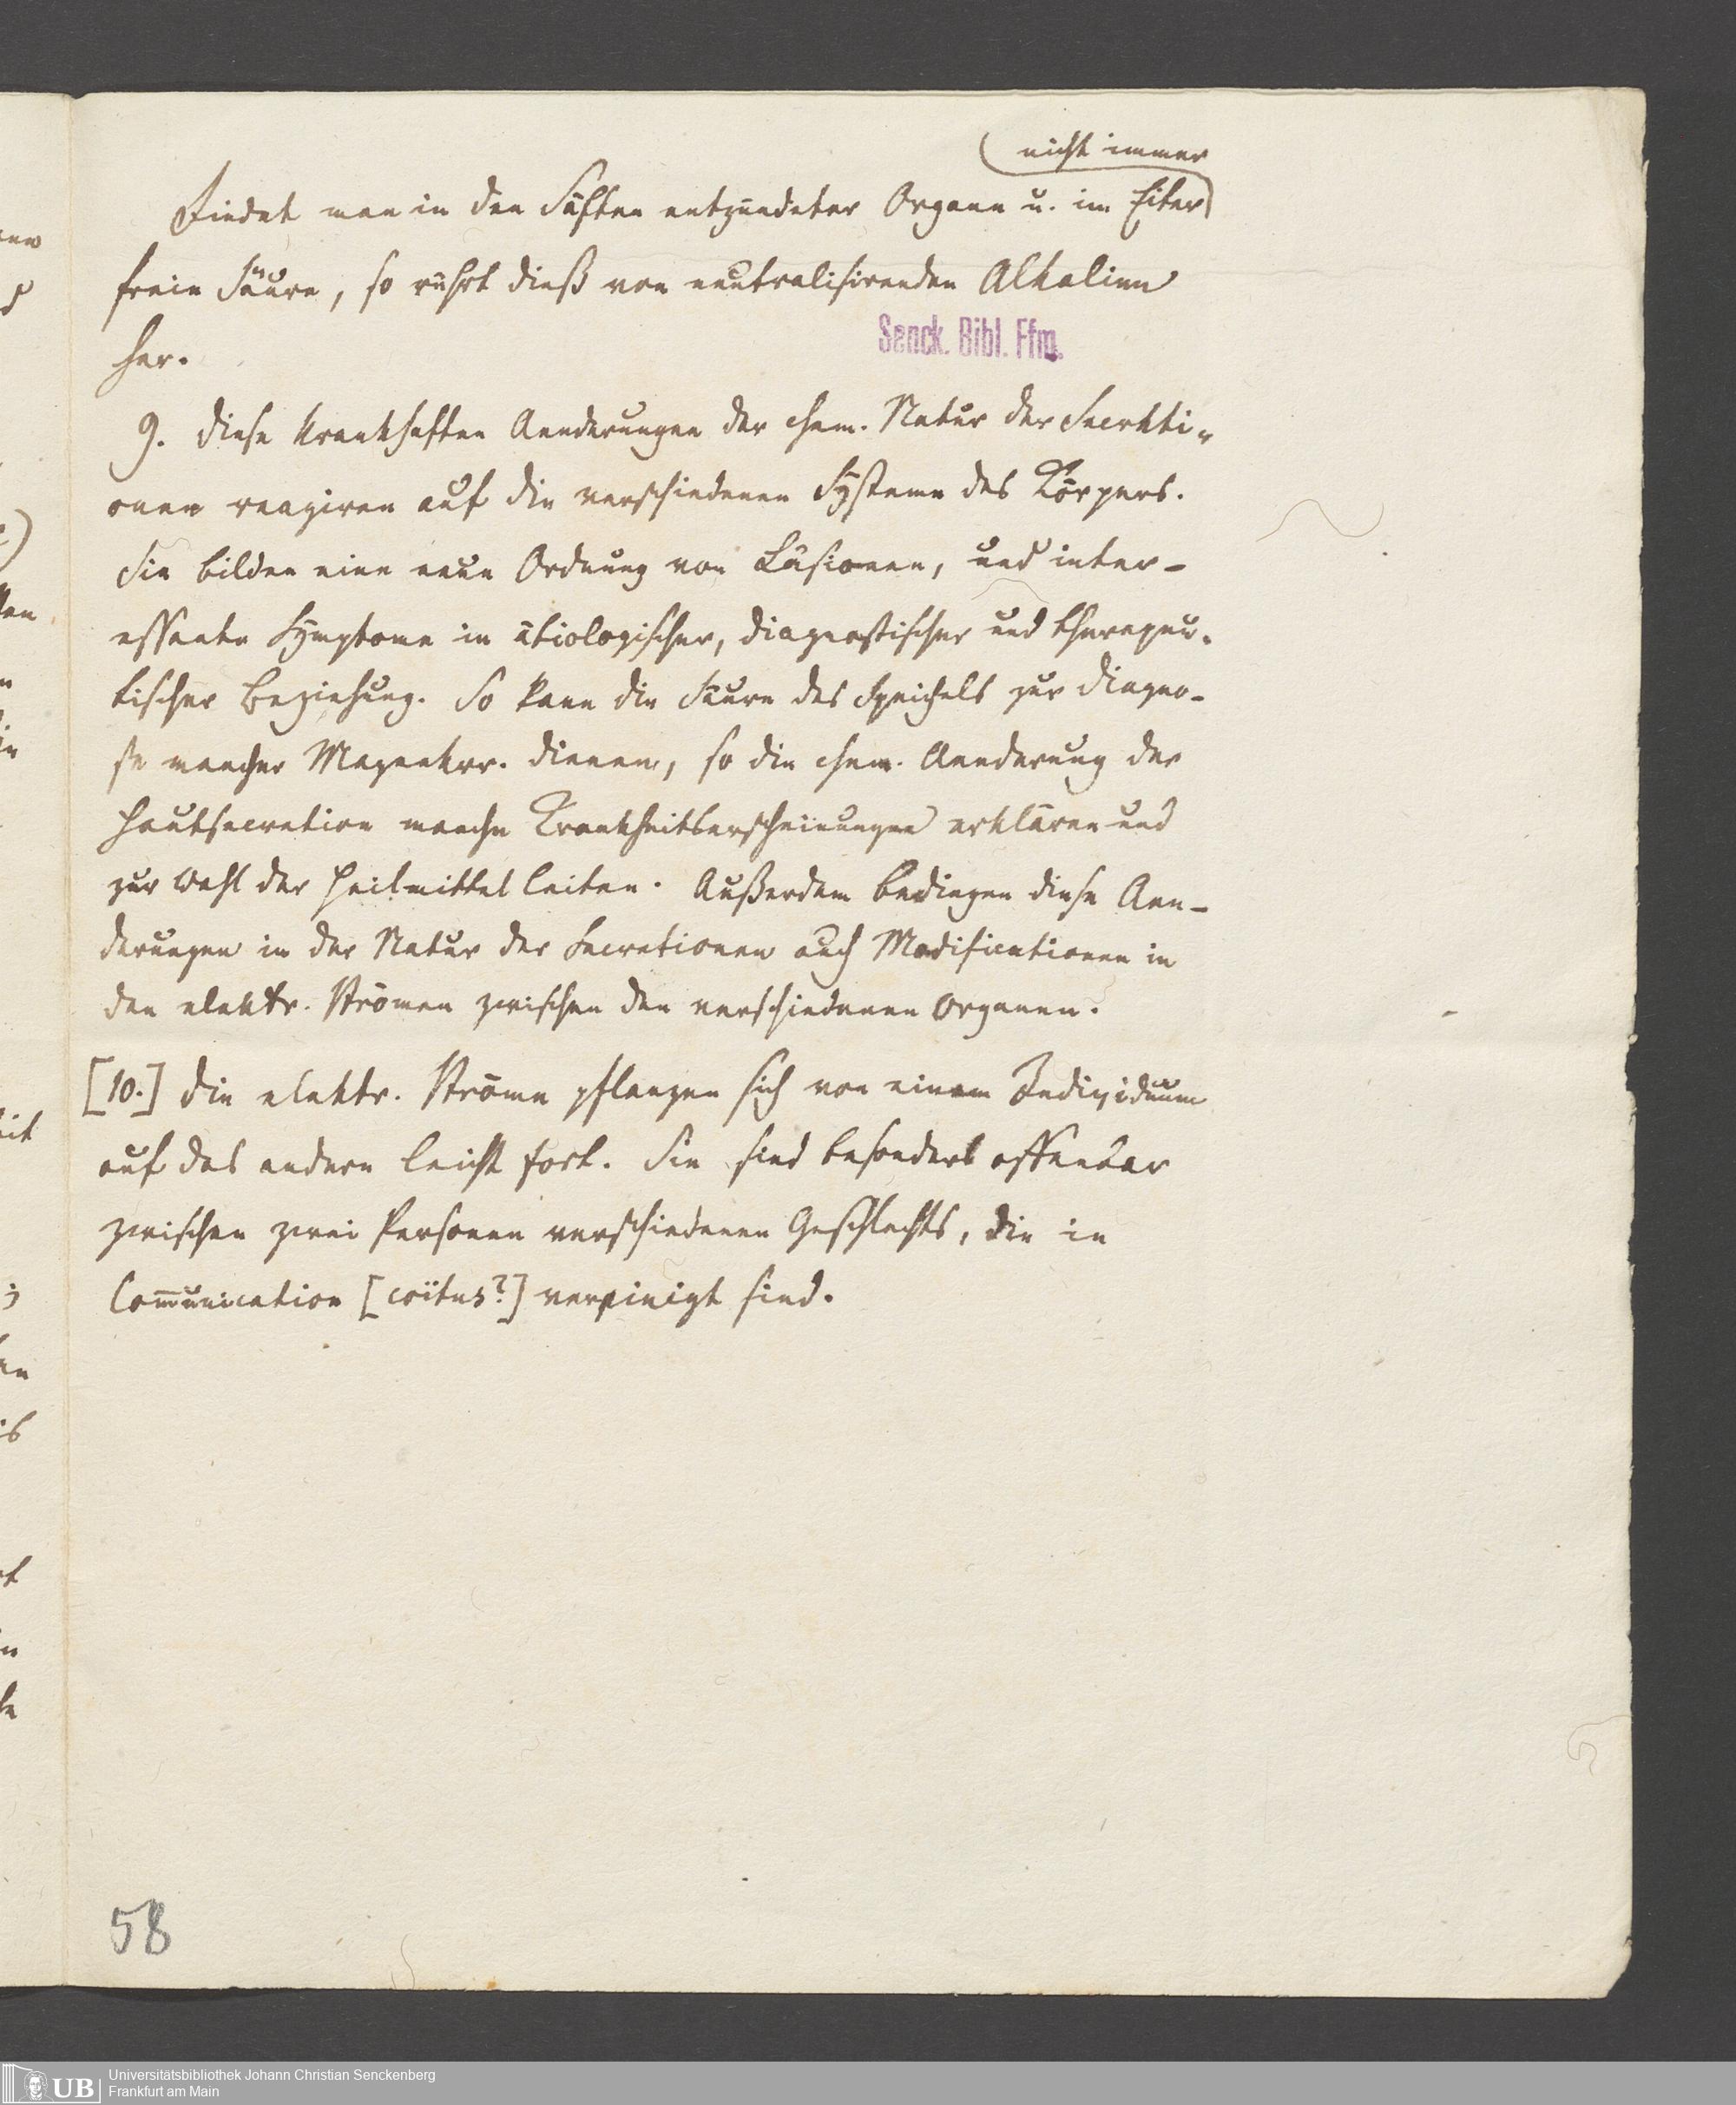 nicht immer
Findet man in den Säften entzündeter Organe u. im Eiter
freie Säure, so rührt dieß von neutralisirenden Alkalien
her.
Senck. Bibl. Ffm.
9. Diese krankhaften Aenderungen der chem. Natur der Secreti-
onen reagiren auf die verschiedenen Systeme des Körpers.
Sie bilden eine neue Ordnung von Läsionen, und inter-
essante Symptome in ätiologischer, diagnostischer und therapeu-
tischer Beziehung. So kann die Säure des Speichels zur Diagno-
se mancher Magenkrr. dienen, so die chem. Aenderung der
Hautsecretion manche Krankheitserscheinungen erklären und
zur Wahl der Heilmittel leiten. Außerdem bedingen diese Aen-
derungen in der Natur der Secretionen auch Modificationen in
den elektr. Strömen zwischen den verschiedenen Organen.
[10.] Die elektr. Ströme pflanzen sich von einem Individuum
auf das andere leicht fort. Sie sind besonders offenbar
zwischen zwei Personen verschiedenen Geschlechts, die in
Communication [coïtus?] vereinigt sind.
58
UB
Universitätsbibliothek Johann Christian Senckenberg
Frankfurt am Main